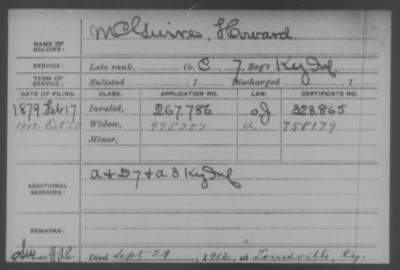 McGuire, Howard.
NAME OF SOLDIER:
SERVICE: Late rank, Co. C, 7 Reg't Ky Inf
TERM OF SERVICE: Enlisted , 1 Discharged , 1
DATE OF FILING. CLASS. APPLICATION NO. LAW. CERTIFICATE NO.
1879 Feb 17 Invalid, 267.786 323.865
1912 Oct 15 Widow, 995357 a 758179
Minor,
ADDITIONAL SERVICES: A & D 7 & A 3 Ky Inf
REMARKS:
Died Sept 29, 1912, at Louisville, Ky.